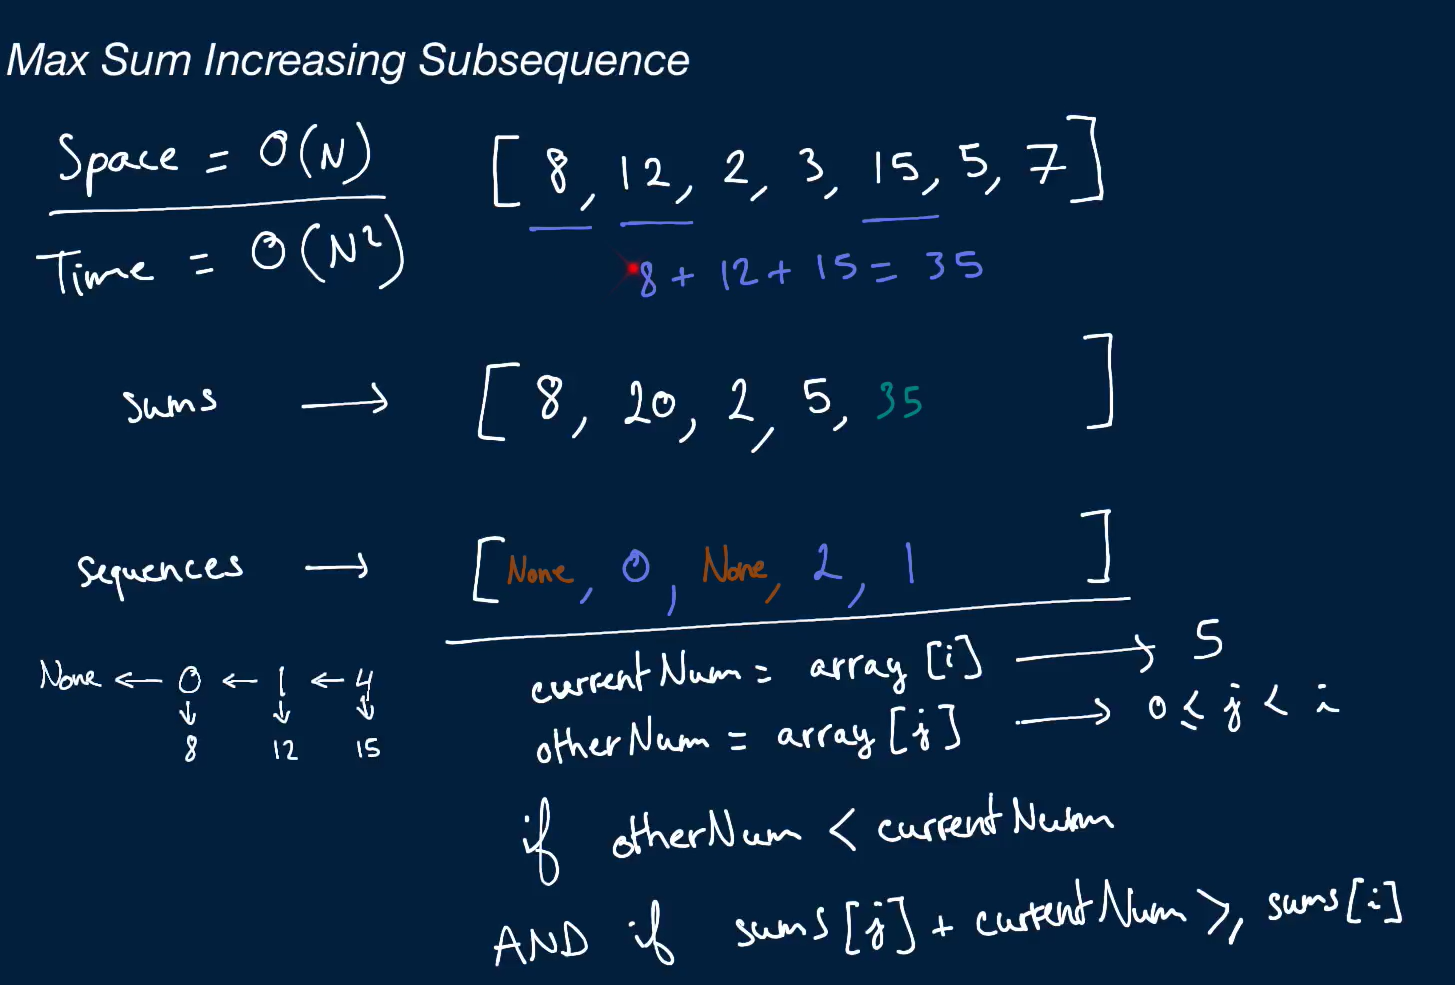 Max Sum Increasing Subsequence
Space = O(N)
Time = O(N²)
[8, 12, 2, 3, 15, 5, 7]
8 + 12 + 15 = 35
sums → [8, 20, 2, 5, 35 ]
sequences → [None, 0, None, 2, 1 ]
None ← 0 ← 1 ← 4
↓ ↓ ↓
8 12 15
currentNum = array[i] → 5
otherNum = array[j] → 0 ≤ j < i
if otherNum < currentNum
AND if sums[j] + currentNum >, sums[i]